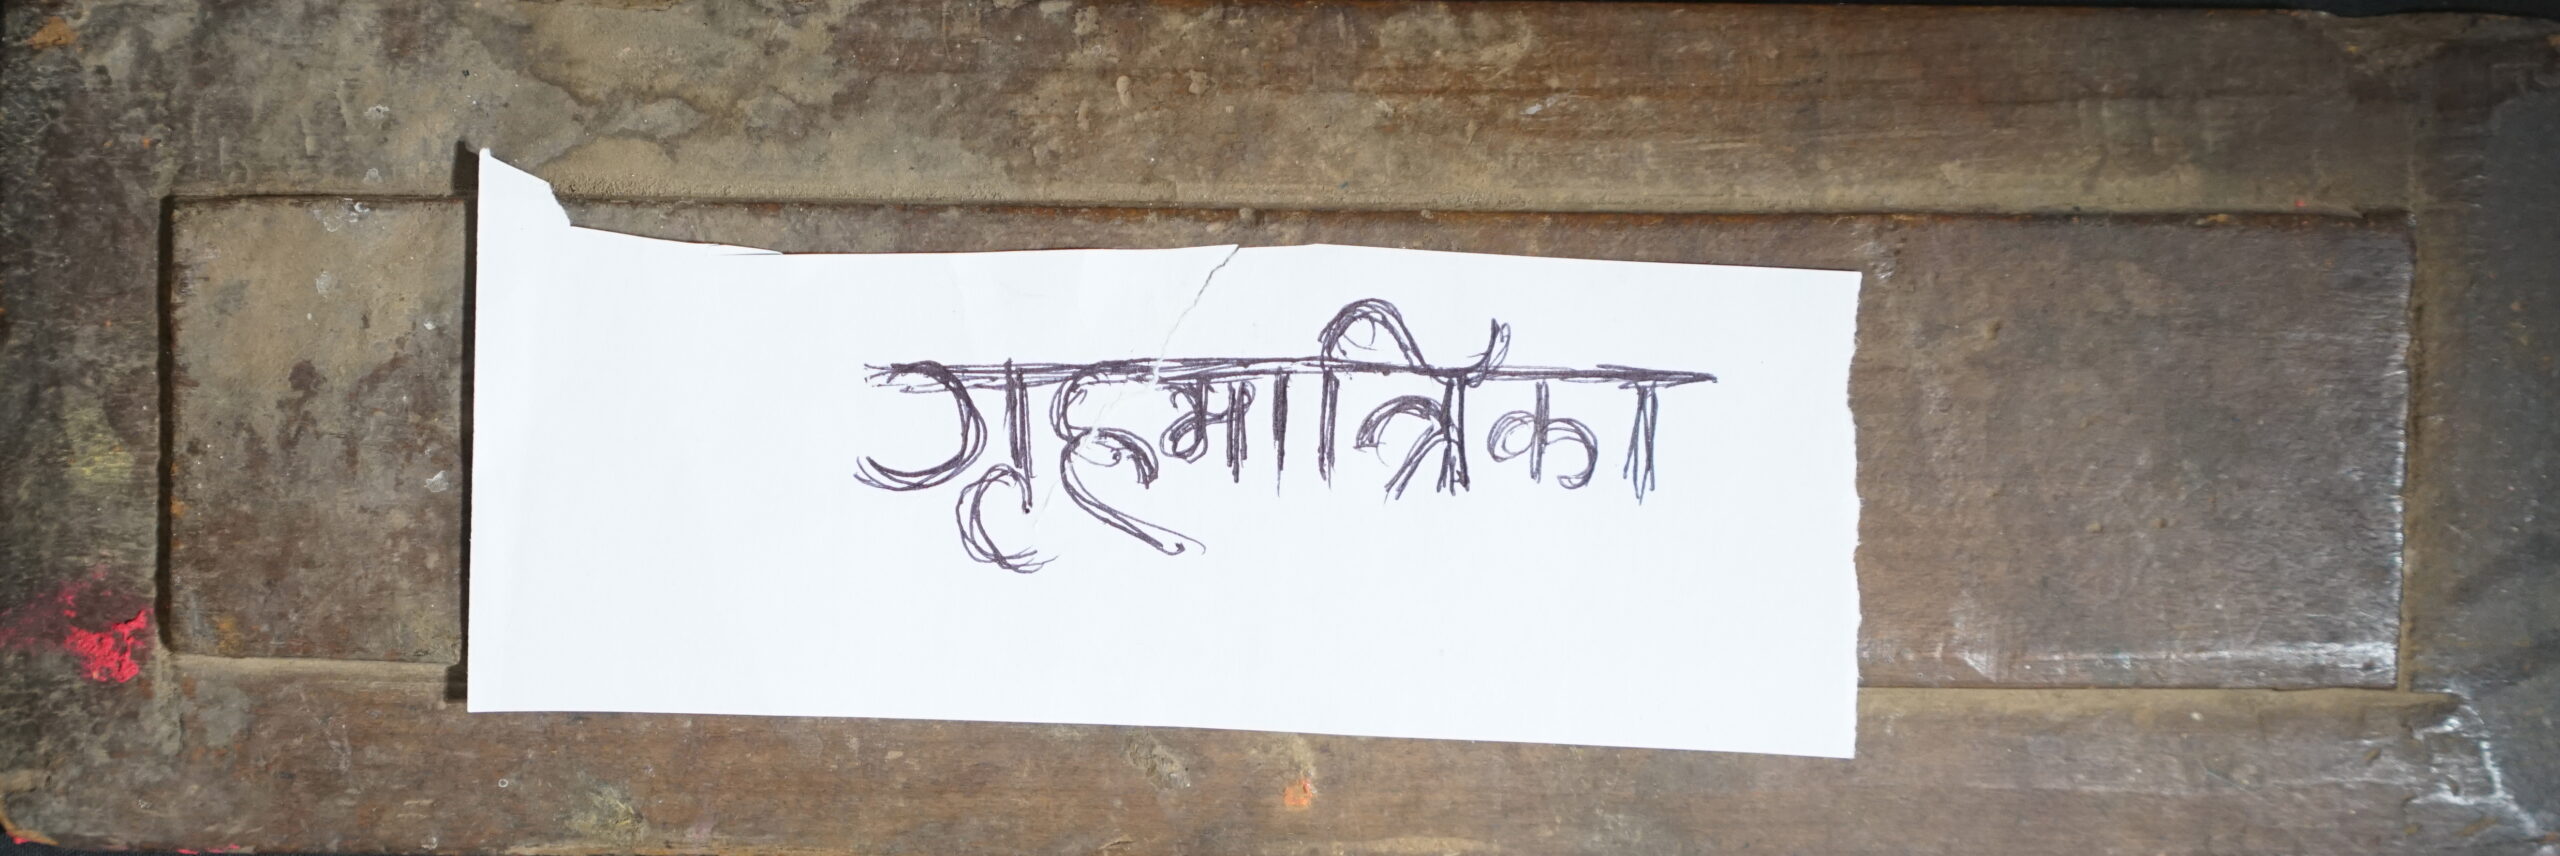 गृहमात्रिका